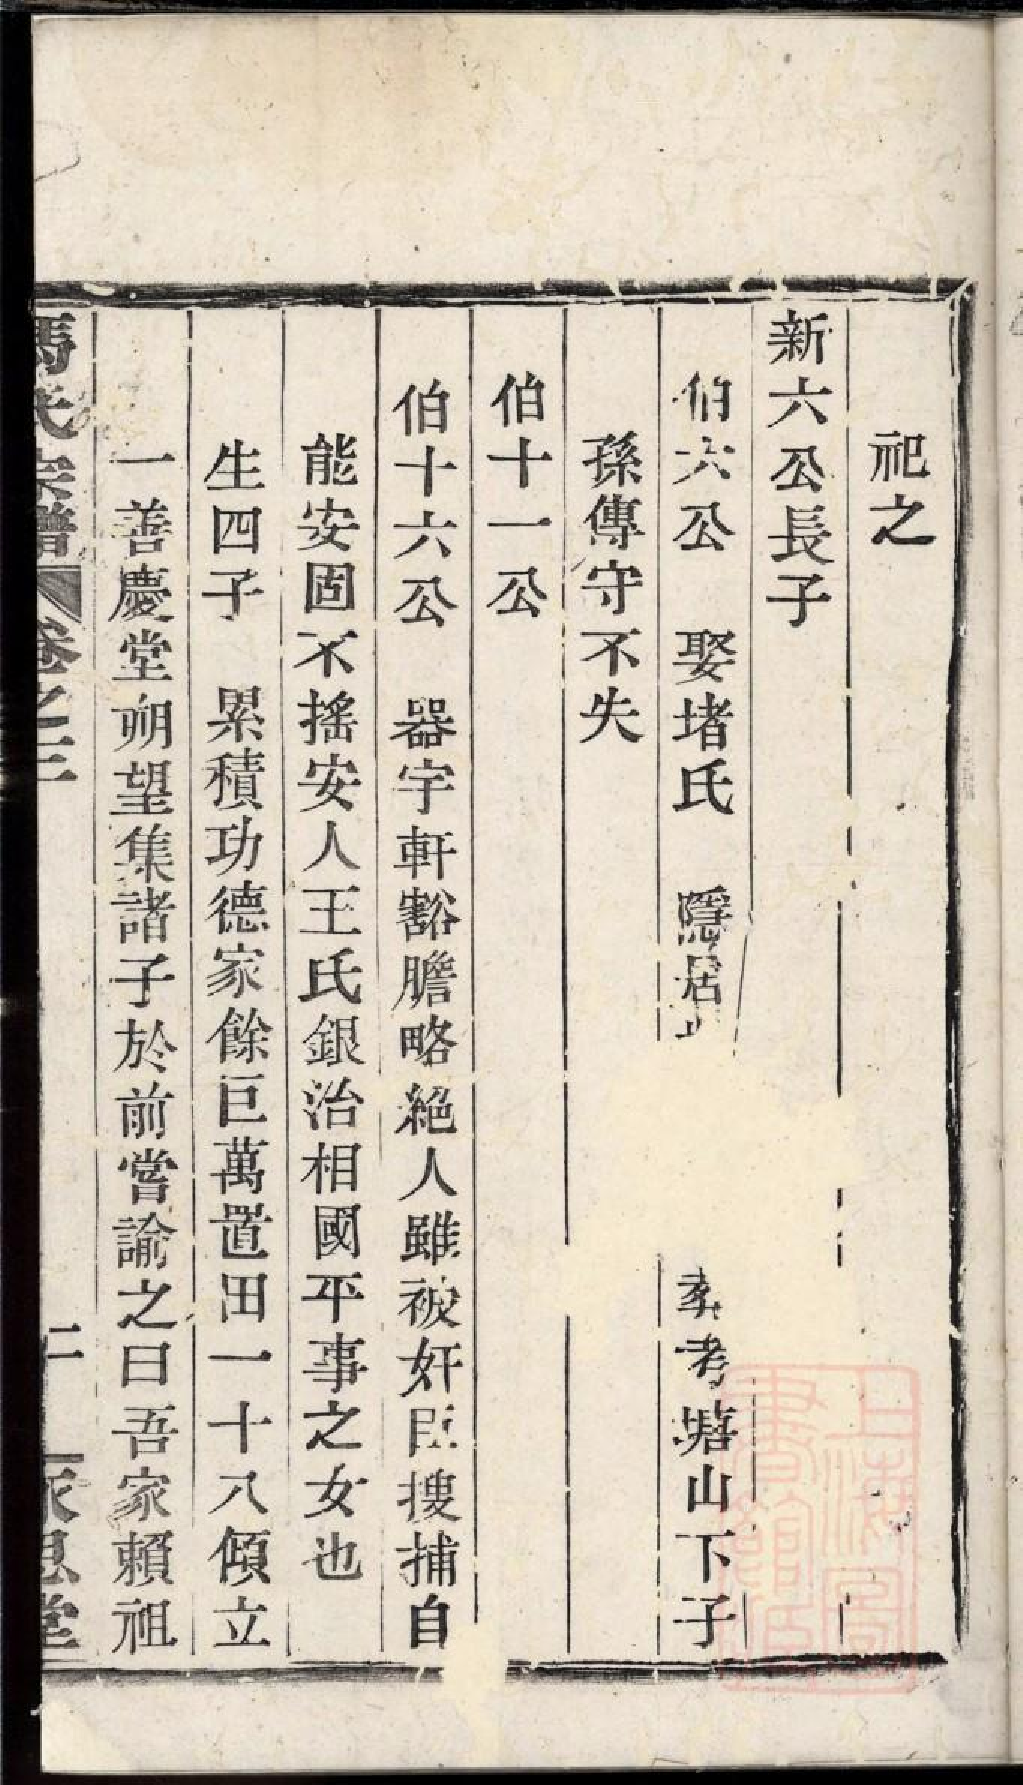 祀之
新六公長子
伯六公　娶堵氏　隱居　考塘山下子
孫傳守不失
伯十一公
伯十六公　器宇軒豁膽略絕人雖被奸臣搜捕自
能安固不搖安人王氏銀治相國平事之女也
生四子　累積功德家餘巨萬置田一十八傾立
一善慶堂朔望集諸子於前嘗諭之曰吾家賴祖
馮氏宗譜　卷之三　永思堂
上海圖書館藏